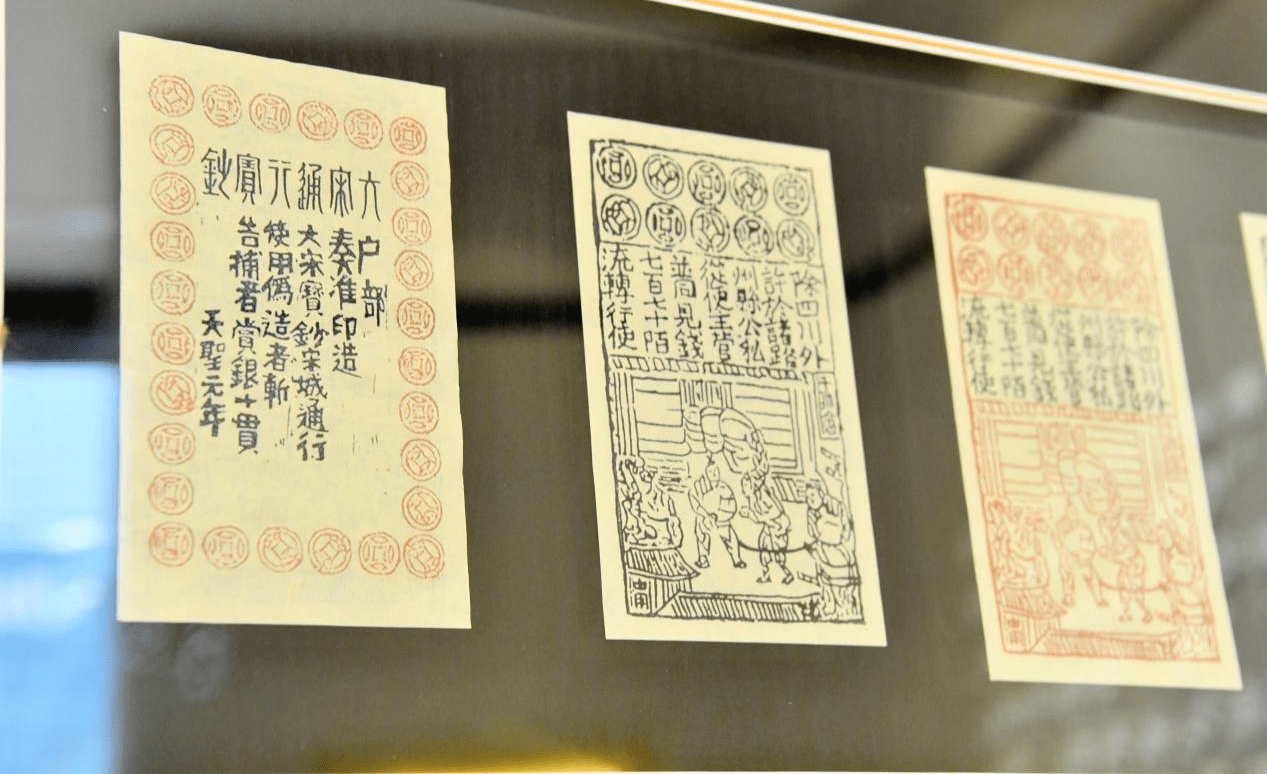 大宋通行寶鈔
户部
奏准印造
大宋寶鈔宋城通行
使用偽造者斬
告捕者賞銀十貫
天聖元年
除四川外
許於諸路
州縣公私
從便主管
並同見錢
七百七十陌
流轉行使
川外
諸路
公私
主管
見錢
七百七十陌
流轉行使